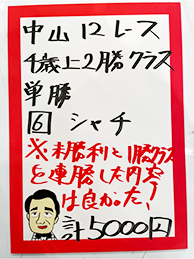 中山12レース
4歳上2勝クラス
単勝
6 シャチ
※未勝利と1勝クラス
を連勝した内容
は良かった!
計5000円